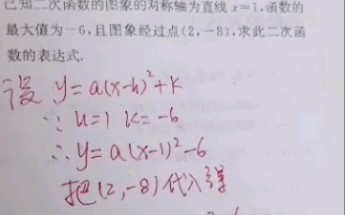 已知二次函数的图象的对称轴为直线 x=1,函数的
最大值为-6,且图象经过点(2,-8),求此二次函
数的表达式.
设 y=a(x-h)²+k
∵ h=1 k=-6
∴ y=a(x-1)²-6
把(2,-8)代入得